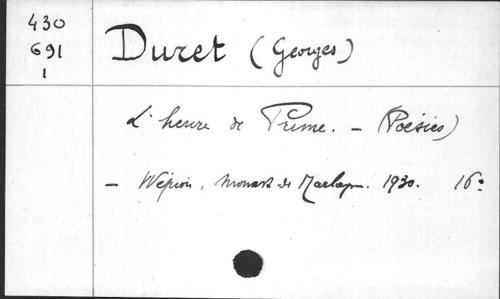 430
691
1
Duret (Georges)
L'heure de Prime. - (Poésies)
- Wépion, Monast. de Marlagne. 1930. 16°